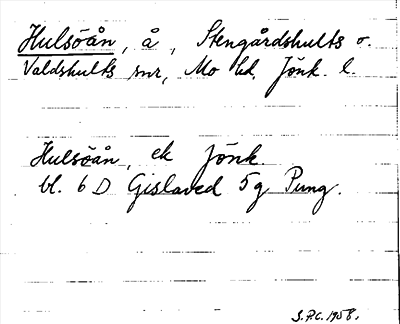 Hulsöån, å, Stengårdshults o.
Valdshults snr, Mo hd, Jönk. l.
Hulsöån, ek Jönk
bl. 6 D Gislaved 5g Pung.
S.P.C. 1958.